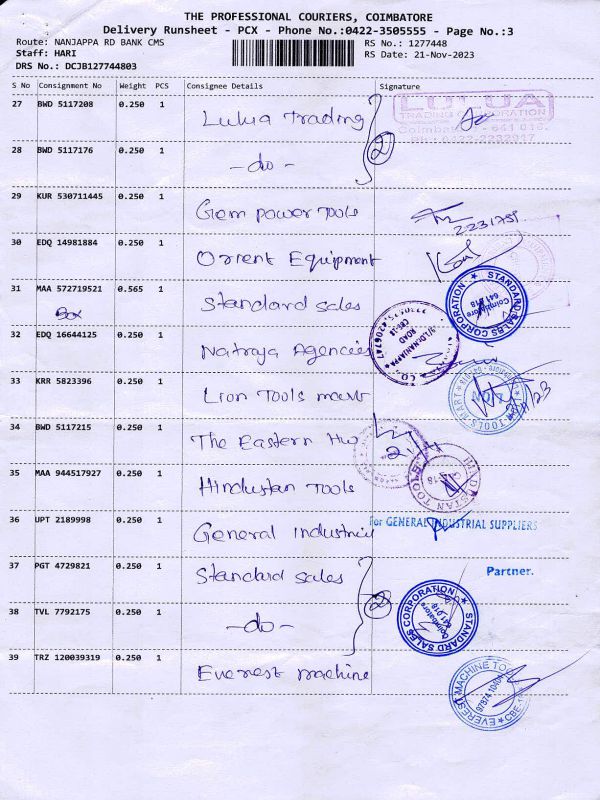 THE PROFESSIONAL COURIERS, COIMBATORE
Delivery Runsheet - PCX - Phone No.:0422-3505555 - Page No.:3
Route: NANJAPPA RD BANK CMS
Staff: HARI
DRS No.: DCJB127744803
RS No.: 1277448
RS Date: 21-Nov-2023
S No Consignment No Weight PCS Consignee Details Signature
27 BWD 5117208 0.250 1 Lulua Trading
LULUA
TRADING CORPORATION
Coimbatore - 641 018.
Ph: 0422-2232917
2
28 BWD 5117176 0.250 1 -do-
29 KUR 530711445 0.250 1 Gem power Tools
2231751
30 EDQ 14981884 0.250 1 Orient Equipment
31 MAA 572719521 0.565 1 Standard sales
Box
STANDARD SALES CORPORATION
Coimbatore
641 018
32 EDQ 16644125 0.250 1 Natraja Agencies
ROAD
CBE-18
33 KRR 5823396 0.250 1 Lion Tools mart
LION TOOLS MART
34 BWD 5117215 0.250 1 The Eastern Hw
35 MAA 944517927 0.250 1 Hindustan Tools
HINDUSTAN TOOLS
36 UPT 2189998 0.250 1 General Industrial
For GENERAL INDUSTRIAL SUPPLIERS
Partner.
37 PGT 4729821 0.250 1 Standard sales
2
38 TVL 7792175 0.250 1 -do-
STANDARD SALES CORPORATION
Coimbatore
641 018
39 TRZ 120039319 0.250 1 Everest machine
EVEREST MACHINE TOOLS
CBE